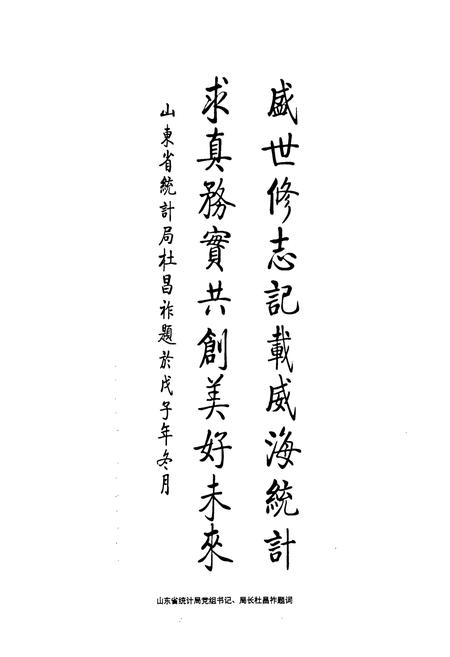 盛世修志記載威海統計
求真務實共創美好未來
山東省統計局杜昌祚題於戊子年冬月
山东省统计局党组书记、局长杜昌祚题词